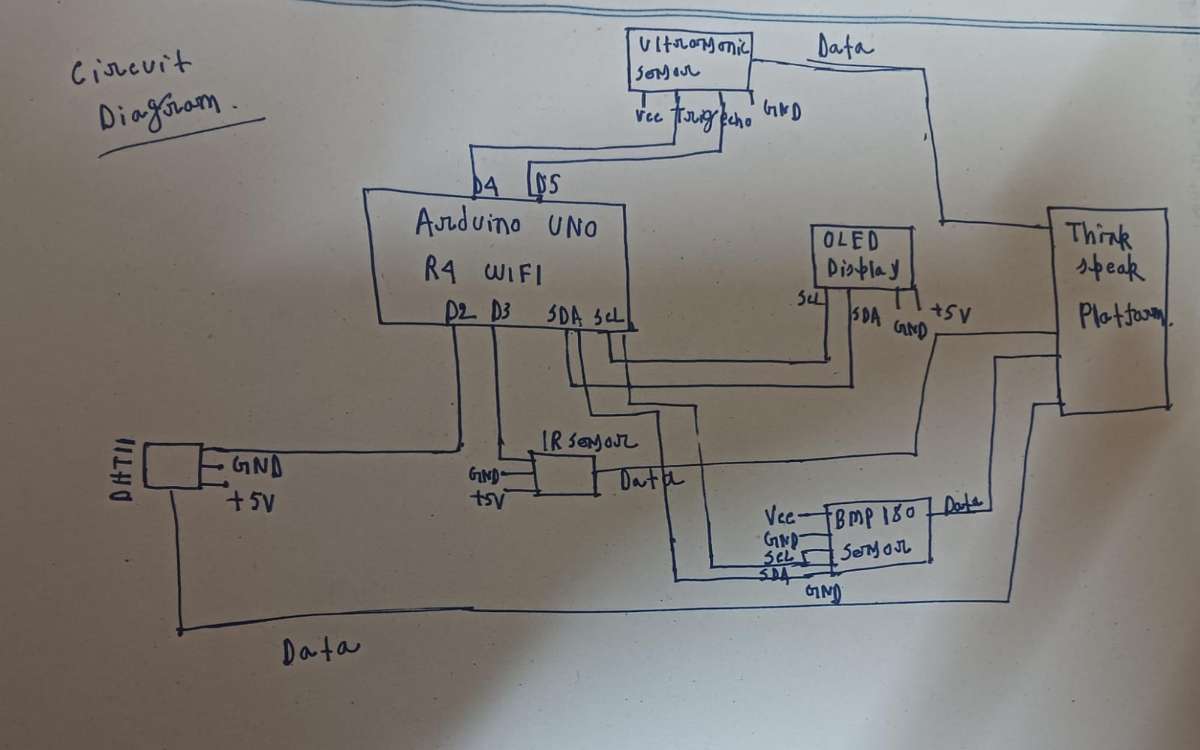 Circuit
Diagram.
Ultrasonic
sensor
Data
Vcc Trig echo GND
D4 D5
Arduino UNO
R4 WIFI
D2 D3 SDA Scl
OLED
Display
Scl SDA GND +5V
Think
speak
Platform.
DHT11
GND
+5V
IR sensor
GND
+5V
Data
Vcc
GND
Scl
SDA
GND
BMP 180
sensor
Data
Data